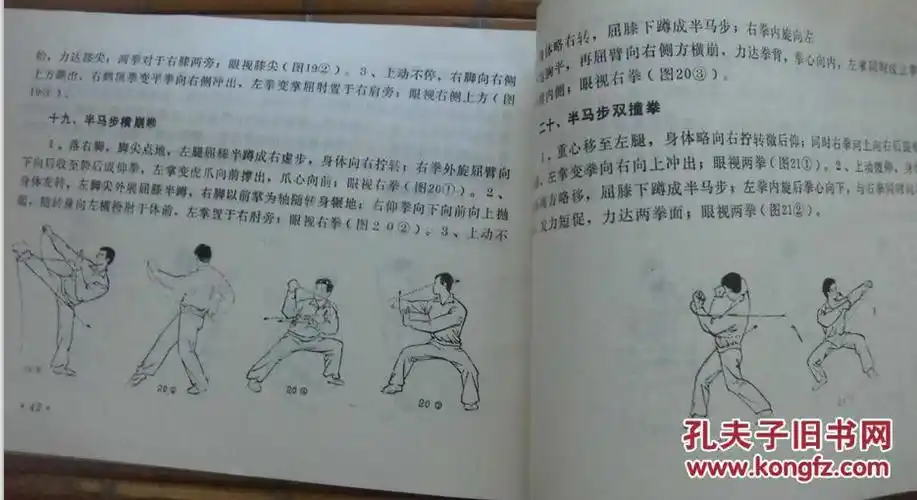 抬，力达膝尖；两拳对于右膝两旁；眼视膝尖（图19②）。3、上动不停，右脚向右侧
上方踢出，右鹤顶拳变平拳向右侧冲出，左拳变掌屈肘置于右肩旁；眼视右侧上方（图
19③）。
十九、半马步横崩拳
1、落右脚，脚尖点地，左腿屈膝半蹲成右虚步，身体向右拧转；右拳外旋屈臂向
下向后收至胯后成仰拳，左掌变虎爪向前撑出，爪心向前；眼视右拳（图20①）。2、
身体左转，左脚尖外展屈膝半蹲，右脚以前掌为轴随转身辗地；右仰拳向下向前向上抛
随转身向左横 于体前，左掌置于右肘旁；眼视右拳（图20②）。3、上动不
20①
20②
20③
·42·
体略右转，屈膝下蹲成半马步；右拳内旋向左
胸平，再屈臂向右侧方横崩，力达拳背，拳心向内，左掌同时
内侧；眼视右拳（图20③）。
二十、半马步双撞拳
1、重心移至左腿，身体略向右拧转微后仰；同时右拳向上向右后
左掌变拳向右向上冲出；眼视两拳（图21①）。2、上动
方略移，屈膝下蹲成半马步；左拳内旋后拳心向下，与右拳同时
发力短促，力达两拳面；眼视两拳（图21②）。
孔夫子旧书网
www.kongfz.com